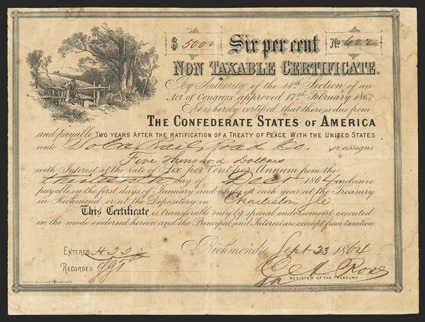 $ 5000 Six per cent No 622
NON TAXABLE CERTIFICATE.
By Authority of the 14th Section of an
Act of Congress approved 17th February 1864
It is hereby certified that there is due from
THE CONFEDERATE STATES OF AMERICA
and payable TWO YEARS AFTER THE RATIFICATION OF A TREATY OF PEACE WITH THE UNITED STATES
unto Rail Road Co, or assigns
Five Thousand Dollars
with Interest at the rate of Six per Centum per Annum from the
day of 1864 inclusive
payable on the first days of January and July in each year, at the Treasury
in Richmond or at the Depository in Charleston
This Certificate is transferable only by special endorsement executed
in the mode endorsed hereon and the Principal and Interest are exempt from taxation
Richmond Sept 23 1864
ENTERED 422
RECORDED
Rose
REGISTER OF THE TREASURY